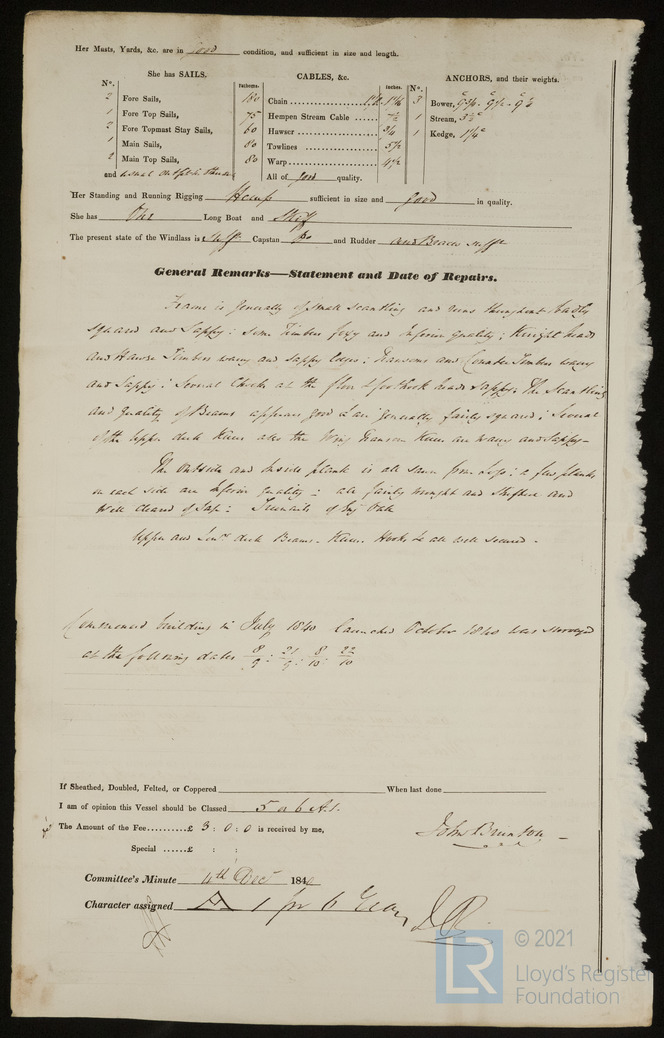 Her Masts, Yards, &c. are in good condition, and sufficient in size and length.
She has SAILS. CABLES, &c. ANCHORS, and their weights.
No. Fathoms. Inches. No.
2 Fore Sails, 180 Chain 1 1/16 3 Bower,
1 Fore Top Sails, 75 Hempen Stream Cable 7½ 1 Stream,
2 Fore Topmast Stay Sails, 60 Hawser 1 Kedge,
1 Main Sails, 80 Towlines 5½
2 Main Top Sails, 80 Warp 4½
and All of good quality.
Her Standing and Running Rigging Hemp sufficient in size and good in quality.
She has One Long Boat and Skiff
The present state of the Windlass is Suff Capstan Do and Rudder and Braces suff
General Remarks—Statement and Date of Repairs.
Frame is generally of small scantling and runs throughout badly
squared and Sappy : some Timbers foxy and Inferior quality ; Knight heads
and Hawse Timbers waney and sappy edges ; Transoms and Counter Timbers waney
and Sappy : Several Chocks at the floor & futtock heads Sappy. The Scantling
and quality of Beams appears good & are generally fairly squared ; Several
of the Upper deck Knees also the Wing Transom Knees are waney and Sappy –
The Outside and Inside plank is all sawn from Logs : a few planks
on each side are Inferior quality – all fairly wrought and shifted and
Well cleared of Sap : Treenails of Oak
Upper and Lowr deck Beams. Knees. Hooks &c all well secured –
Commenced building in July 1840 launched October 1840 was surveyed
at the following dates 8/9 : 21/9 : 8/10 : 22/10
If Sheathed, Doubled, Felted, or Coppered When last done
I am of opinion this Vessel should be Classed 5 or 6 A.1.
The Amount of the Fee..........£ 3 : 0 : 0 is received by me,
John Brunton
Special ......£ : :
Committee's Minute 4th Decr 1840
Character assigned A 1 for 6 Years
© 2021
LR Lloyd's Register
Foundation